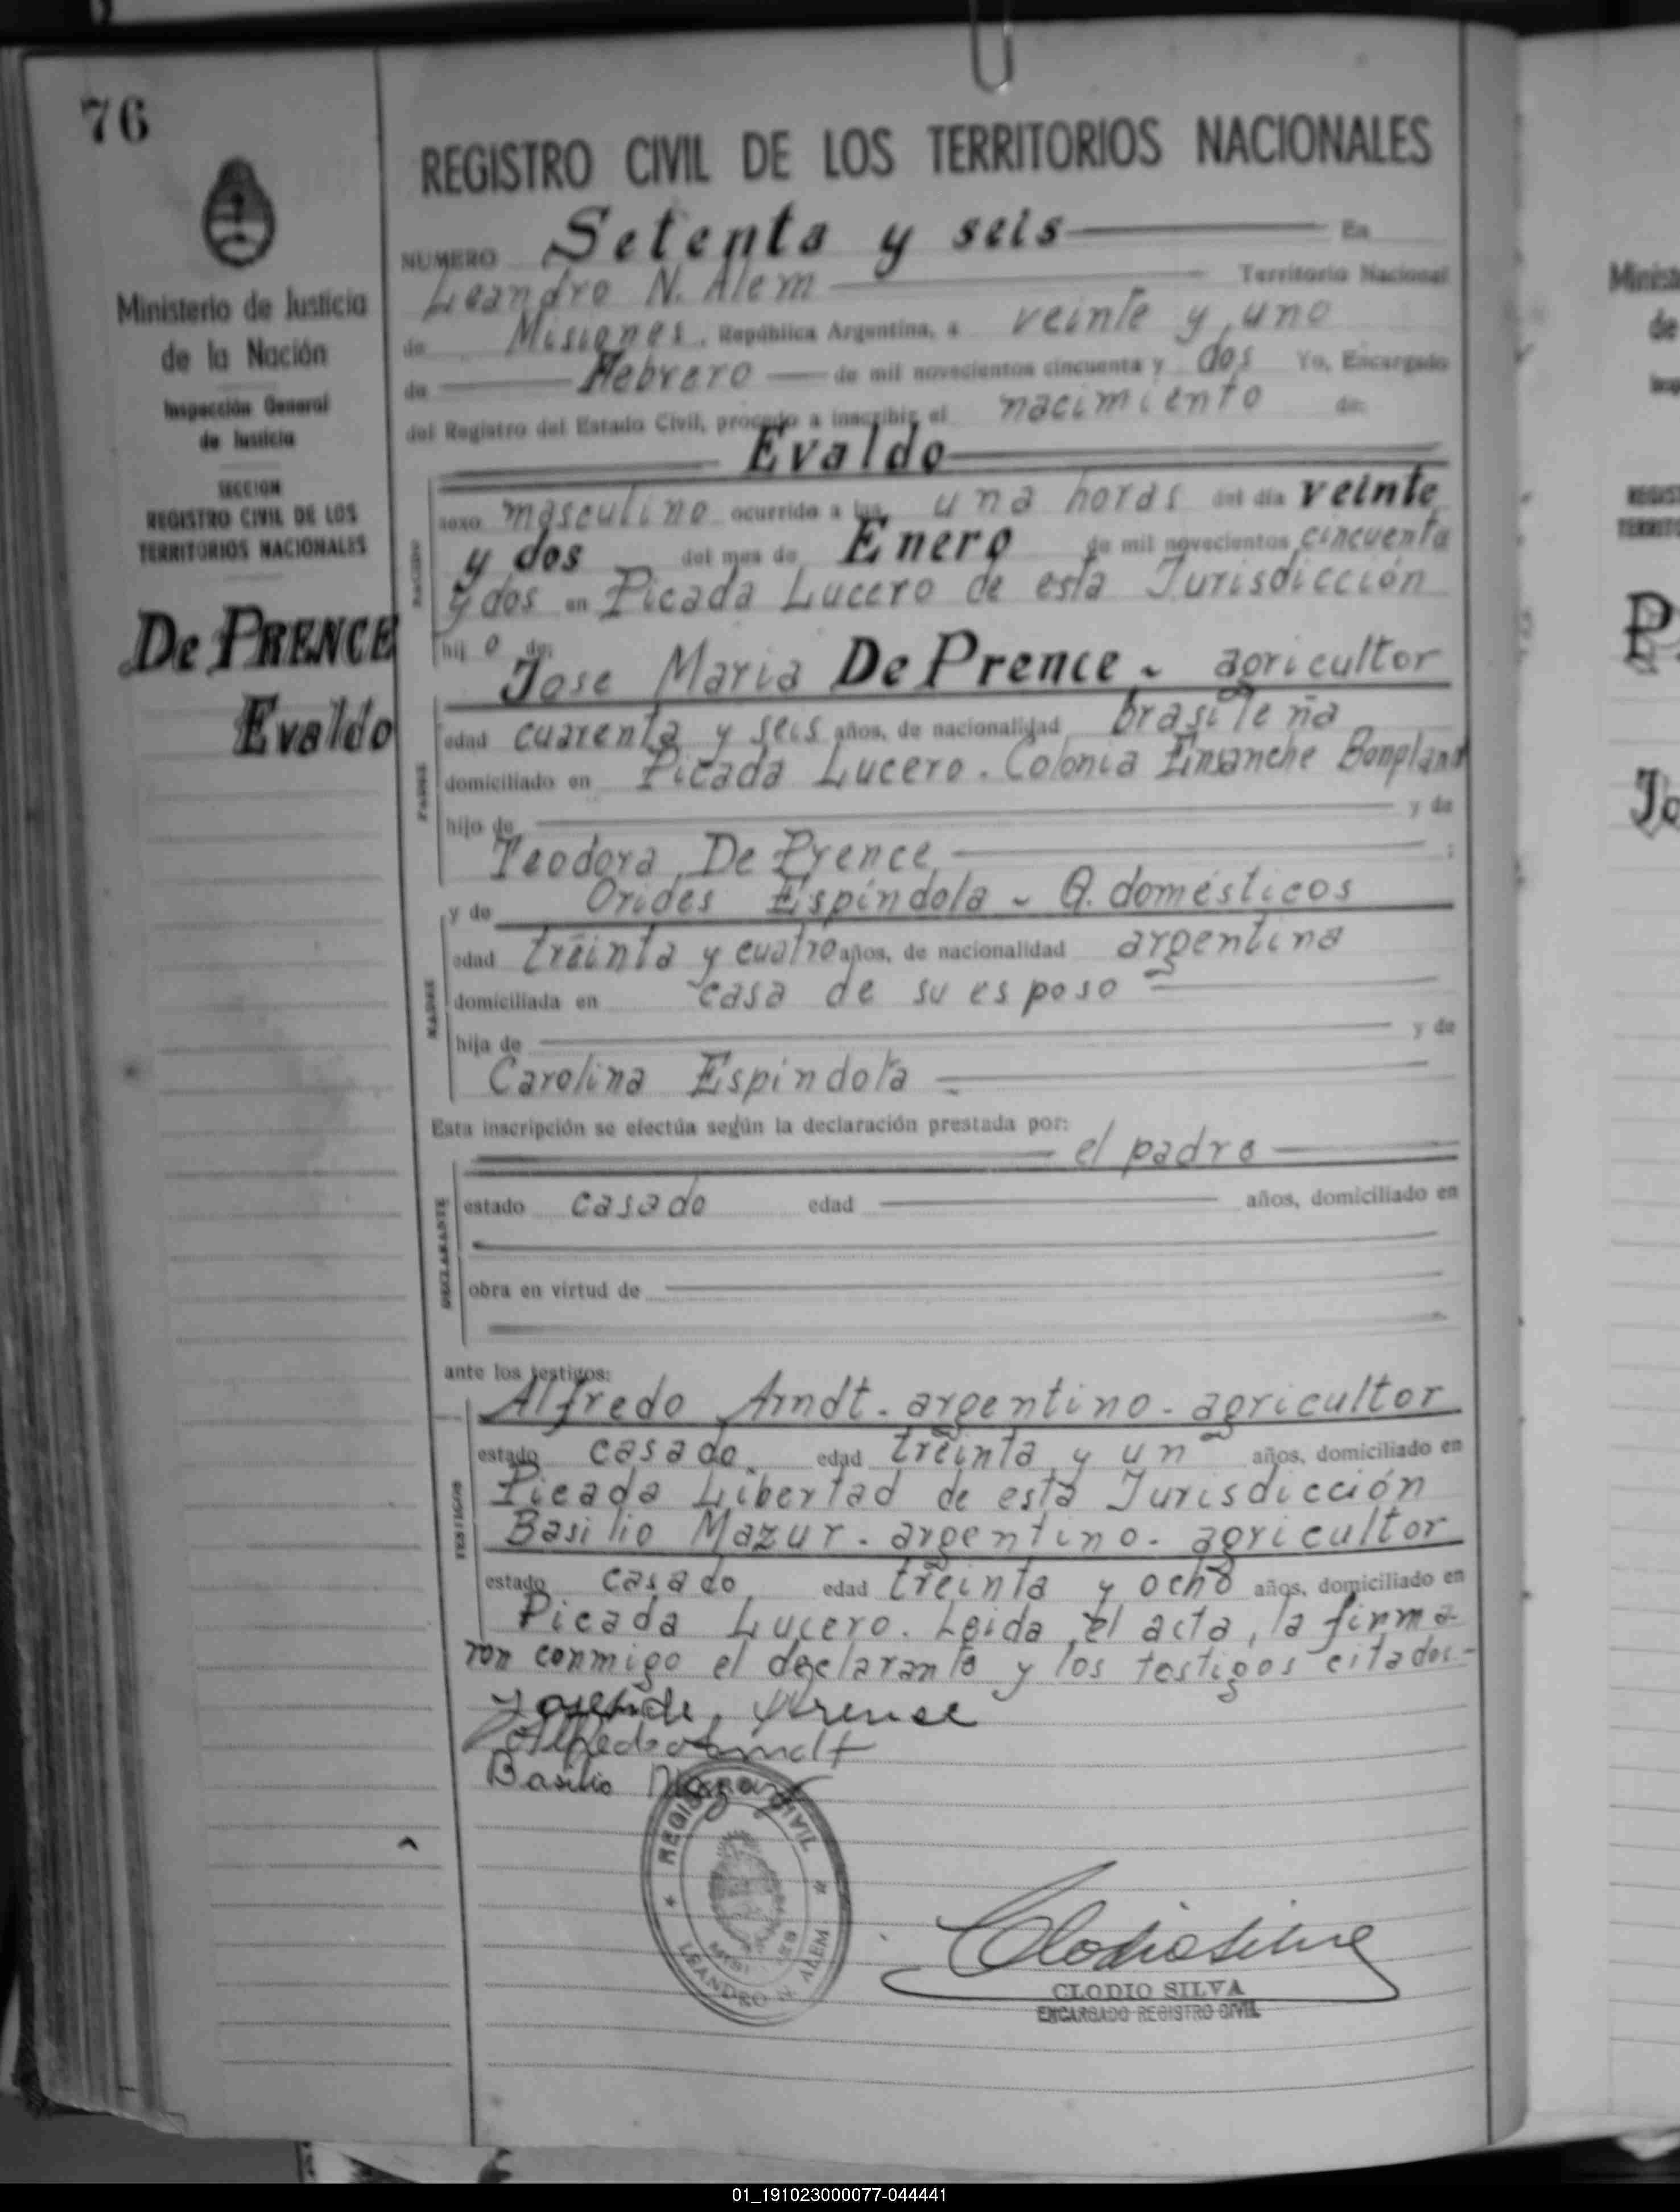 76
Ministerio de Justicia
de la Nación
Inspección General
de Justicia
SECCION
REGISTRO CIVIL DE LOS
TERRITORIOS NACIONALES
De PRENCE
Evaldo
REGISTRO CIVIL DE LOS TERRITORIOS NACIONALES
NUMERO Setenta y seis En
Leandro N. Alem Territorio Nacional
de Misiones, República Argentina, a veinte y uno
de Febrero de mil novecientos cincuenta y dos Yo, Encargado
del Registro del Estado Civil, procedo a inscribir el nacimiento de:
Evaldo
sexo masculino ocurrido a las una horas del día veinte
y dos del mes de Enero de mil novecientos cincuenta
y dos en Picada Lucero de esta Jurisdicción
hij o de:
Jose Maria De Prence - agricultor
PADRE
edad cuarenta y seis años, de nacionalidad brasileña
domiciliado en Picada Lucero. Colonia Ensanche Bonpland
hijo de y de
Teodora De Prence ;
y de Orides Espíndola - Q. domésticos
MADRE
edad treinta y cuatro años, de nacionalidad argentina
domiciliada en casa de su esposo
hija de y de
Carolina Espindola
Esta inscripción se efectúa según la declaración prestada por:
el padre
DECLARANTE
estado casado edad años, domiciliado en
obra en virtud de
ante los testigos:
Alfredo Arndt - argentino - agricultor
TESTIGOS
estado casado edad treinta y un años, domiciliado en
Picada Libertad de esta Jurisdicción
Basilio Mazur - argentino - agricultor
estado casado edad treinta y ocho años, domiciliado en
Picada Lucero. Leida el acta, la firma-
ron conmigo el declarante y los testigos citados.-
Alfredo Arndt
Basilio Mazur
REGISTRO CIVIL
MISIONES
LEANDRO N. ALEM
Clodio Silva
CLODIO SILVA
ENCARGADO REGISTRO CIVIL
01_191023000077-044441